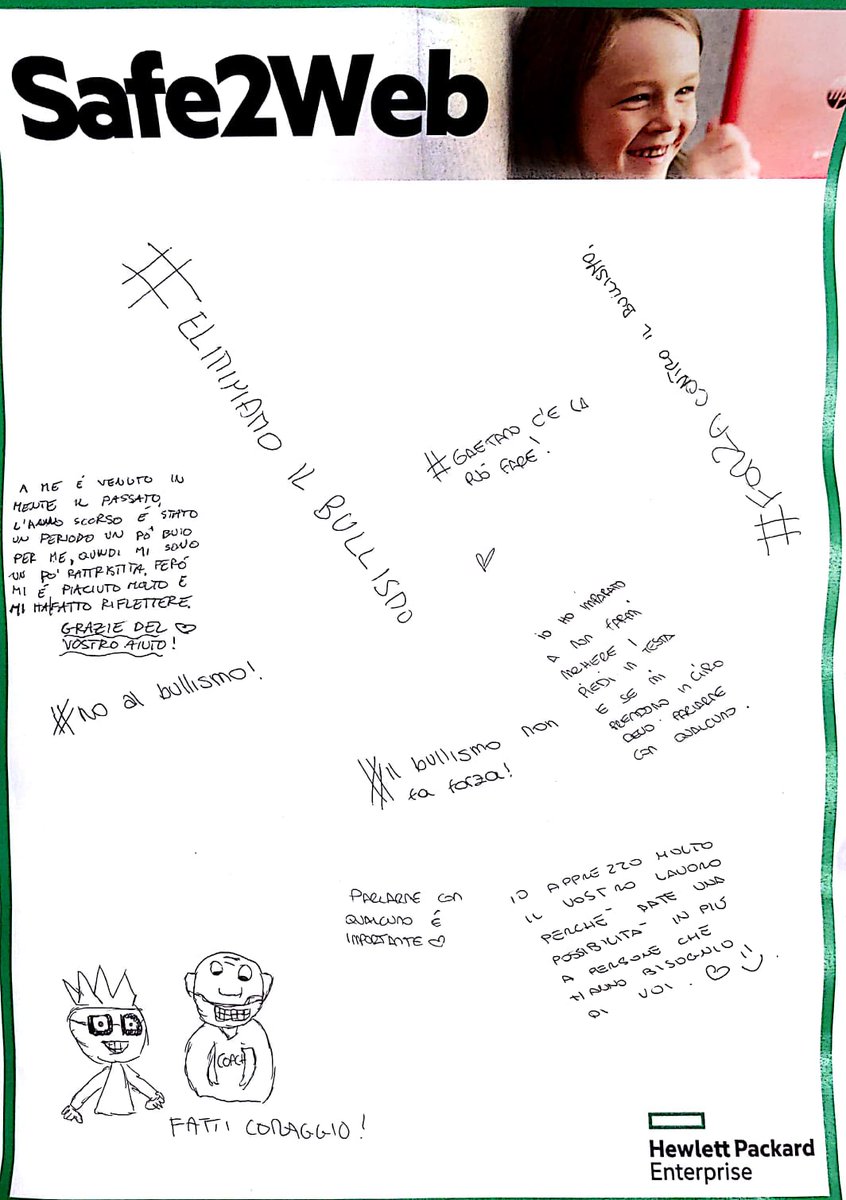 Safe2Web
hp
#ELIMINIAMO IL BULLISMO
#FORZA CONTRO IL BULLISMO.
#GAETANO C'E LA
PUÓ FARE!
A ME É VENUTO IN
MENTE IL PASSATO,
L'ANNO SCORSO É STATO
UN PERIODO UN PO' BUIO
PER ME, QUINDI MI SONO
UN PO' RATTRISTITA, PERÓ
MI É PIACIUTO MOLTO E
MI HA FATTO RIFLETTERE.
GRAZIE DEL
VOSTRO AIUTO!
#NO al bullismo!
IO HO IMPARATO
A NON FARMI
METTERE I
PIEDI IN TESTA
E SE MI
PRENDONO IN GIRO
DEVO PARLARNE
CON QUALCUNO.
#Il bullismo non
fa forza!
PARLARNE CON
QUALCUNO É
IMPORTANTE
IO APPREZZO MOLTO
IL VOSTRO LAVORO
PERCHÉ DATE UNA
POSSIBILITÀ IN PIÚ
A PERSONE CHE
HANNO BISOGNIO
DI VOI.
COACH
FATTI CORAGGIO!
Hewlett Packard
Enterprise